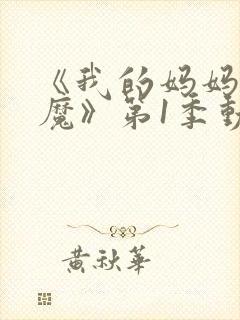 《我的妈妈
魔》第1季動
黄秋華